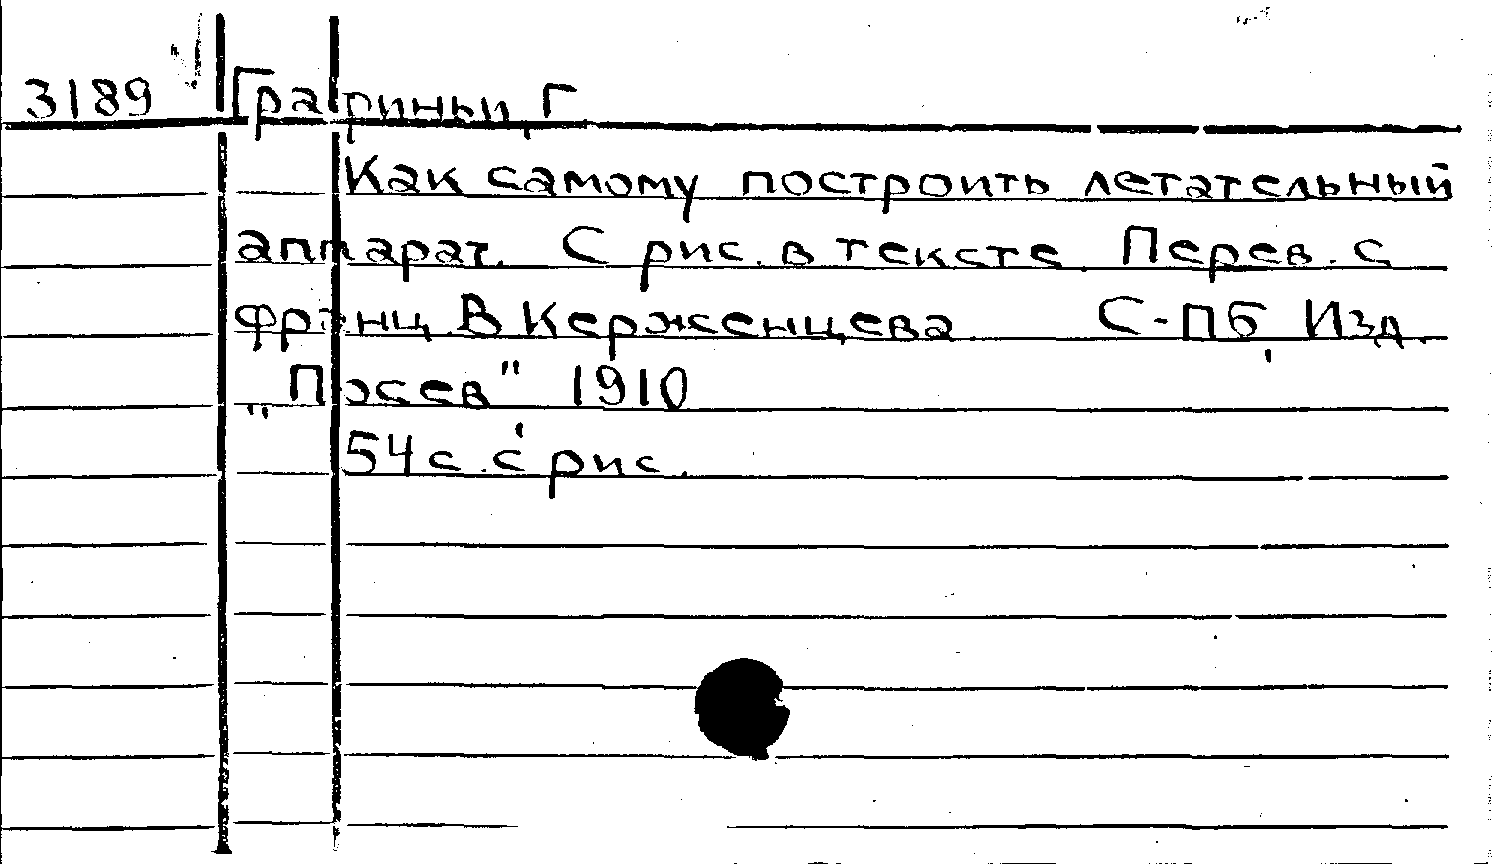 3189 Графиньи, Г
Как самому построить летательный
аппарат. С рис. в тексте. Перев. с
франц В Керженцева С-Пб, Изд.
„Посев" 1910
54 с. с рис.